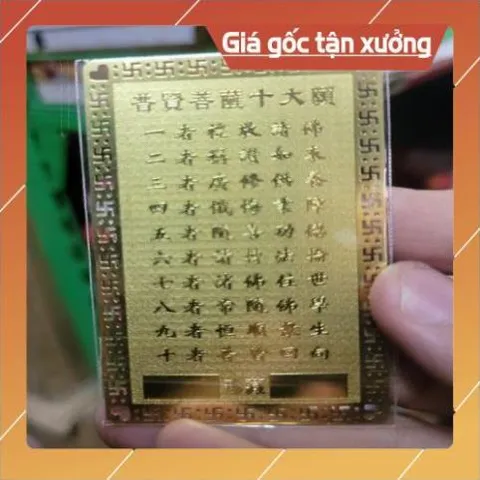 Giá gốc tận xưởng
普賢菩薩十大願
一者禮敬諸佛
二者稱讚如來
三者廣修供養
四者懺悔業障
五者隨喜功德
六者請轉法輪
七者請佛住世
八者常隨佛學
九者恒順眾生
十者普皆回向